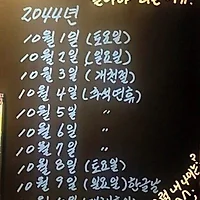 2044년
10월 1일 (토요일)
10월 2일 (일요일)
10월 3일 (개천절)
10월 4일 (추석연휴)
10월 5일 〃
10월 6일 〃
10월 7일 〃
10월 8일 (토요일)
10월 9일 (일요일) 한글날